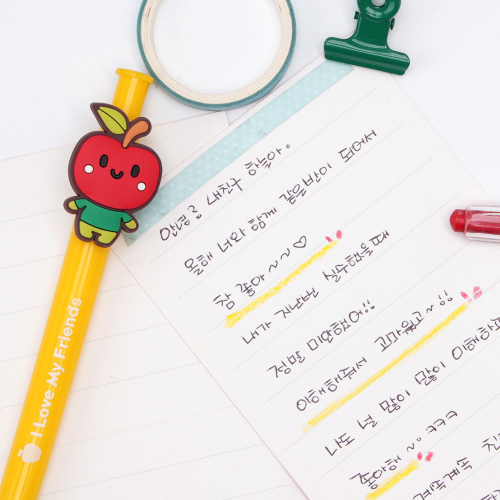 I Love My Friends
안녕! 내친구 하늘아.
올해 너와 함께 같은반이 되어서
참 좋아~~♡
내가 지난번 실수했을때
정말 미안했어!!
이해해줘서 고마웠고~!!
나도 널 많이 많이 이해하고
좋아해~ ㅋㅋㅋ
계속계속 친